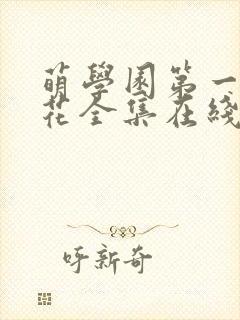 萌學園第一
花全集在綫
呼新奇